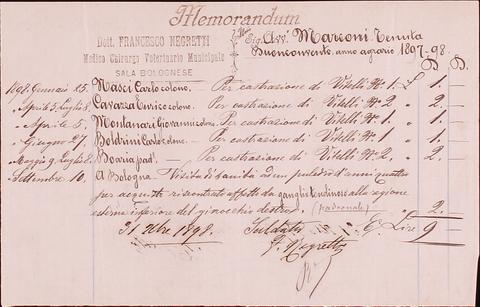 Memorandum
Dott. FRANCESCO NEGRETTI
Medico Chirurgo Veterinario Municipale
SALA BOLOGNESE
Sig. Avv. Marconi Tenuta
Buonconvento, anno agrario 1897-98.
1898. Gennaio 25. Masci Carlo colono. — Per castrazione di Vitelli N. 1. £ 1. —
" Aprile 5, Luglio 8 Cavazza Enrico colono. — Per castrazione di Vitelli N. 2 " 2. —
" Aprile 5. Montanari Giovanni colono. — Per castrazione di Vitelli N. 1 " 1. —
" Giugno 27. Boldrini Carlo colono. — Per castrazione di Vitelli N. 1 " 1 —
" Maggio 9, Luglio 8. Boaria pad. — Per castrazione di Vitelli N. 2. " 2. —
" Settembre 10. A Bologna. Visita di sanità ad un puledro d'anni quattro
per acquisto riscontrato affetto da ganglio alla regione
esterna inferiore del ginocchio destro. (padronale) " 2. —
31 8bre 1898. Saldato £ Lire 9 —
F. Negretti